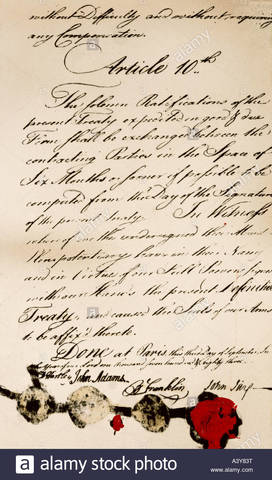 without Difficulty and without requiring
any Compensation.
Article 10th.
The solemn Ratifications of the
present Treaty expedited in good & due
Form shall be exchanged between the
contracting Parties in the Space of
Six Months or sooner if possible to be
computed from the Day of the Signature
of the present Treaty. In Witness
whereof we the undersigned their Ministers
Plenipotentiary have in their Name
and in Virtue of our Full Powers signed
with our Hands the present Definitive
Treaty, and caused the Seals of our Arms
to be affix'd thereto.
Done at Paris this third Day of September, In
the Year of our Lord one thousand seven hundred & eighty three.
D Hartley John Adams B Franklin John Jay
alamy stock photo
A3Y83T
www.alamy.com